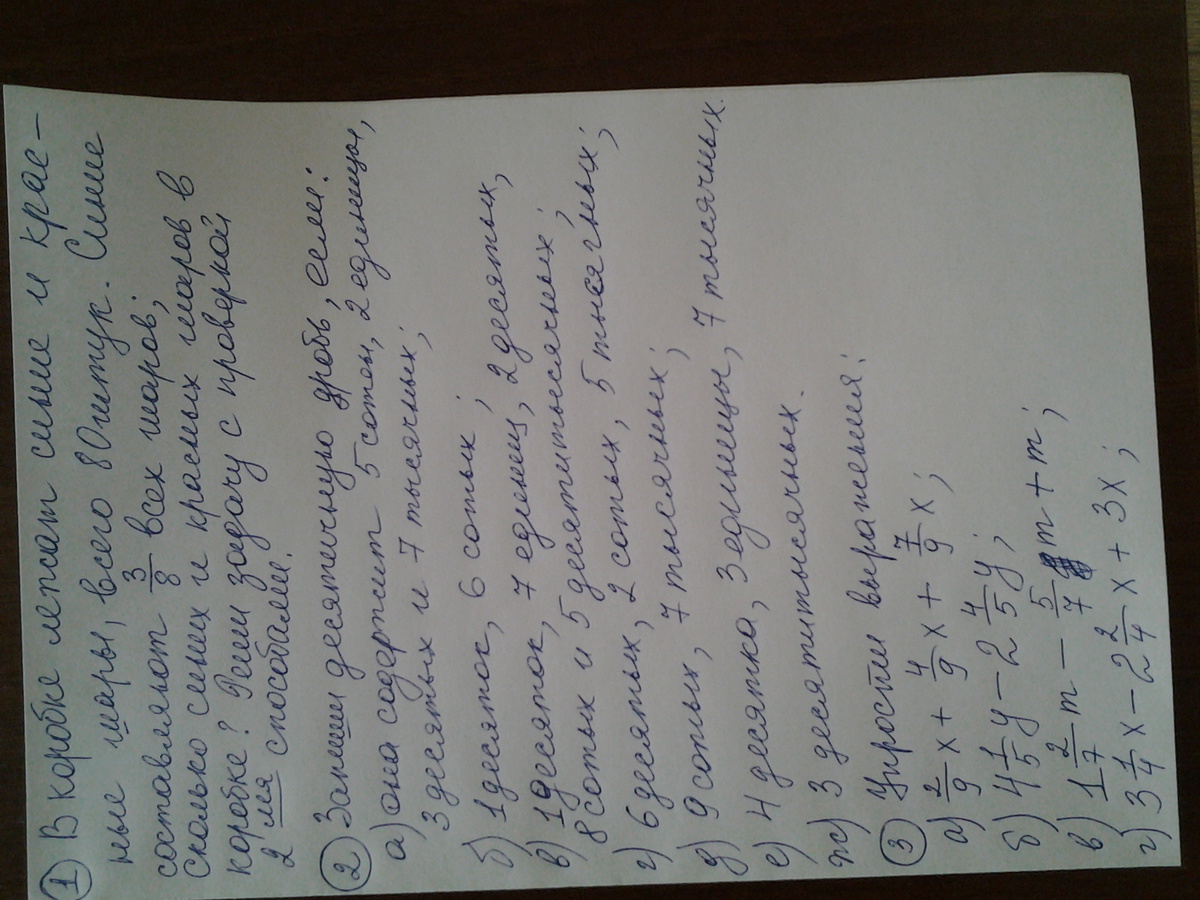 ① В коробке лежат синие и крас-
ные шары, всего 80 штук. Синие
составляют 3/8 всех шаров;
сколько синих и красных шаров в
коробке? Реши задачу с проверкой
2мя способами.
② Запиши десятичную дробь, если:
а) она содержит 5 сотен, 2 единицы,
3 десятых и 7 тысячных;
б) 1 десяток, 6 сотых;
в) 1 десяток, 7 единиц, 2 десятых,
8 сотых и 5 десятитысячных;
г) 6 десятых, 2 сотых, 5 тысячных;
д) 9 сотых, 7 тысячных;
е) 4 десятка, 3 единицы, 7 тысячных.
ж) 3 десятитысячных.
③ Упрости выражения:
а) 2/9 x + 4/9 x + 7/9 x;
б) 4 1/5 y − 2 4/5 y;
в) 1 2/7 m − 5/7 m + m;
г) 3 1/4 x − 2 2/4 x + 3x;